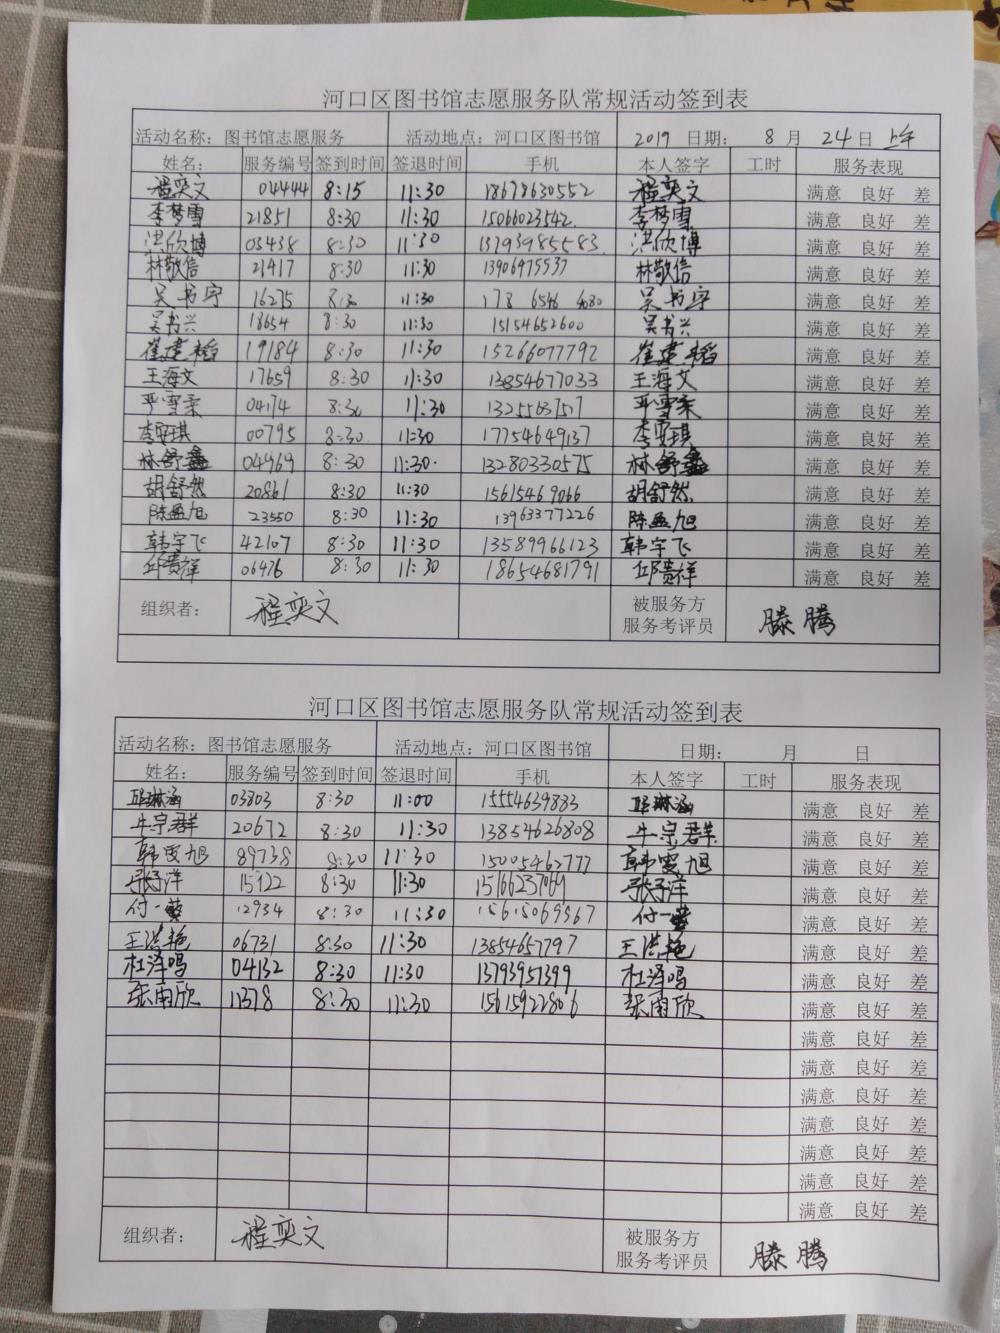 河口区图书馆志愿服务队常规活动签到表
活动名称：图书馆志愿服务 活动地点：河口区图书馆 2019 日期： 8 月 24 日 上午
姓名： 服务编号 签到时间 签退时间 手机 本人签字 工时 服务表现
程奕文 04444 8:15 11:30 18678630552 程奕文 满意 良好 差
李梦雪 21851 8:30 11:30 15066023542 李梦雪 满意 良好 差
洪欣博 03438 8:30 11:30 13793985583 洪欣博 满意 良好 差
林敬信 21417 8:30 11:30 13906975537 林敬信 满意 良好 差
吴书宇 16275 8:30 11:30 178 6546 4080 吴书宇 满意 良好 差
吴书兴 18654 8:30 11:30 15154652600 吴书兴 满意 良好 差
崔建韬 19184 8:30 11:30 15266077792 崔建韬 满意 良好 差
王海文 17659 8:30 11:30 13854677033 王海文 满意 良好 差
严雪柔 04174 8:30 11:30 严雪柔 满意 良好 差
李雯琪 00795 8:30 11:30 17754649137 李雯琪 满意 良好 差
林舒鑫 04969 8:30 11:30 13280330575 林舒鑫 满意 良好 差
胡舒然 20861 8:30 11:30 15615469066 胡舒然 满意 良好 差
陈孟旭 23550 8:30 11:30 13963377226 陈孟旭 满意 良好 差
韩宇飞 42107 8:30 11:30 13589966123 韩宇飞 满意 良好 差
邱贵祥 06476 8:30 11:30 18654681791 邱贵祥 满意 良好 差
组织者： 程奕文 被服务方 滕腾
服务考评员
河口区图书馆志愿服务队常规活动签到表
活动名称：图书馆志愿服务 活动地点：河口区图书馆 日期： 月 日
姓名： 服务编号 签到时间 签退时间 手机 本人签字 工时 服务表现
琳涵 03803 8:30 11:00 15554639883 琳涵 满意 良好 差
牛宗群 20672 8:30 11:30 13854626808 牛宗群 满意 良好 差
韩雯旭 89738 8:30 11:30 15005462777 韩雯旭 满意 良好 差
张子洋 15922 8:30 11:30 15166237069 张子洋 满意 良好 差
付一 12934 8:30 11:30 15615069567 付一 满意 良好 差
王洪艳 06731 8:30 11:30 13854657797 王洪艳 满意 良好 差
杜泽鸣 04132 8:30 11:30 13793957399 杜泽鸣 满意 良好 差
张雨欣 11378 8:30 11:30 15615922806 张雨欣 满意 良好 差
满意 良好 差
满意 良好 差
满意 良好 差
满意 良好 差
满意 良好 差
满意 良好 差
满意 良好 差
组织者： 程奕文 被服务方 滕腾
服务考评员